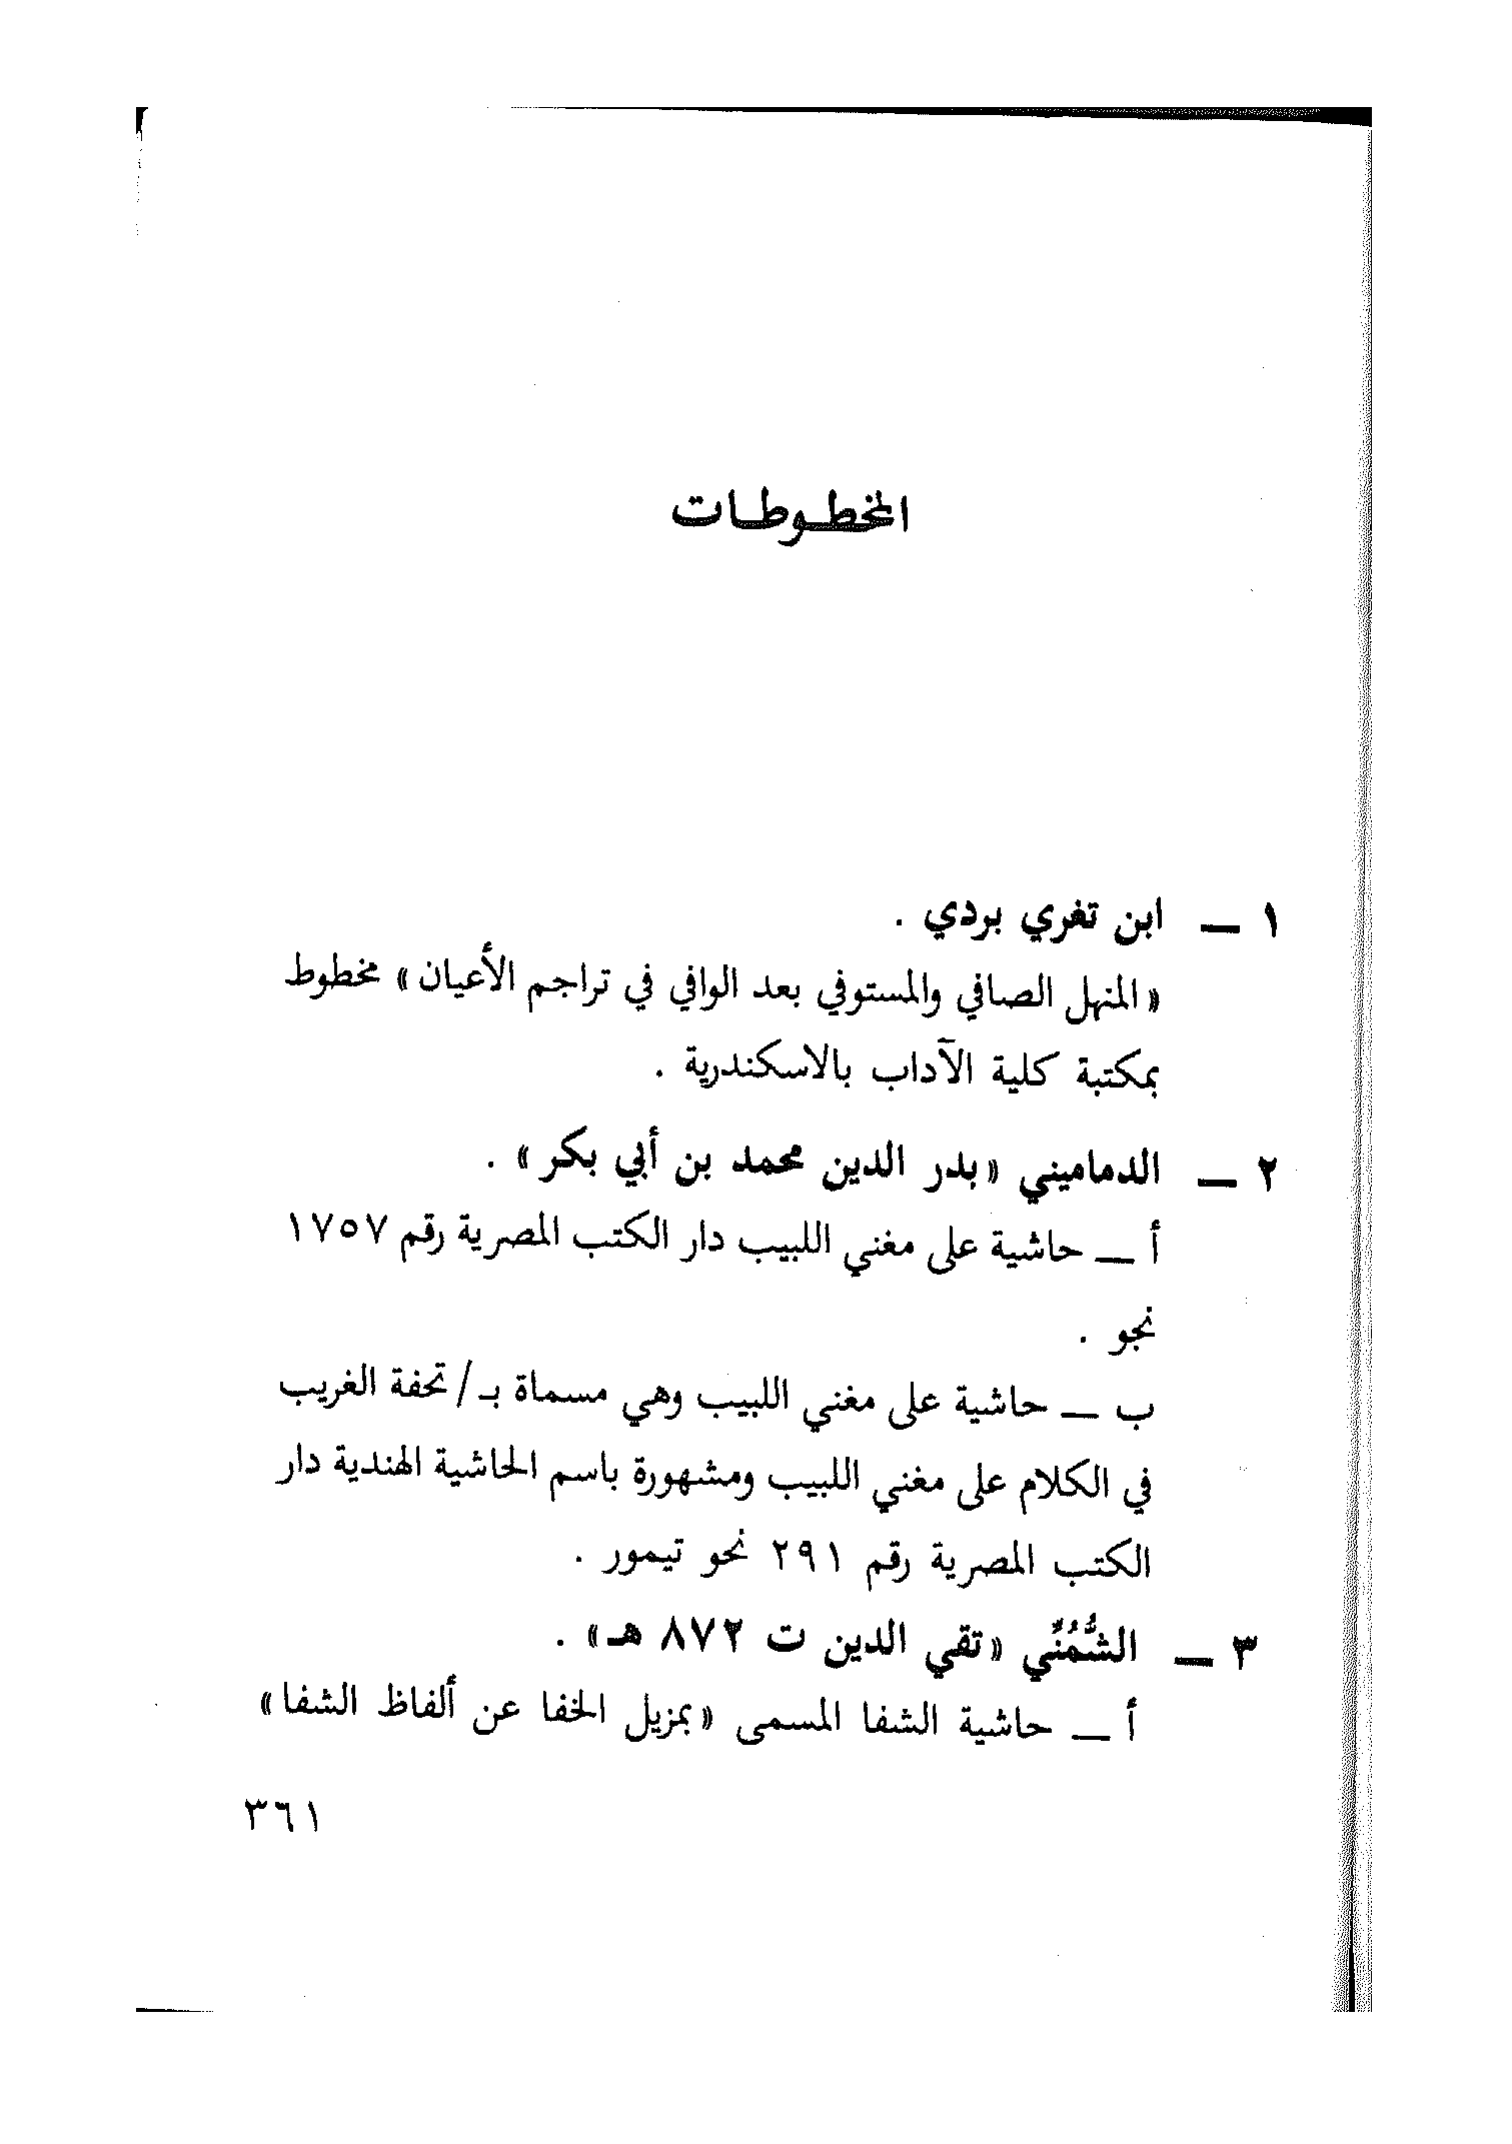 المخطوطات
١ — ابن تغري بردي .
« المنهل الصافي والمستوفي بعد الوافي في تراجم الأعيان » مخطوط
بمكتبة كلية الآداب بالاسكندرية .
٢ — الدماميني « بدر الدين محمد بن أبي بكر » .
أ — حاشية على مغني اللبيب دار الكتب المصرية رقم ١٧٥٧
نجو .
ب — حاشية على مغني اللبيب وهي مسماة بـ/ تحفة الغريب
في الكلام على مغني اللبيب ومشهورة باسم الحاشية الهندية دار
الكتب المصرية رقم ٢٩١ نحو تيمور .
٣ — الشُّمُنِّي « تقي الدين ت ٨٧٢ هـ » .
أ — حاشية الشفا المسمى « بمزيل الخفا عن ألفاظ الشفا »
٣٦١